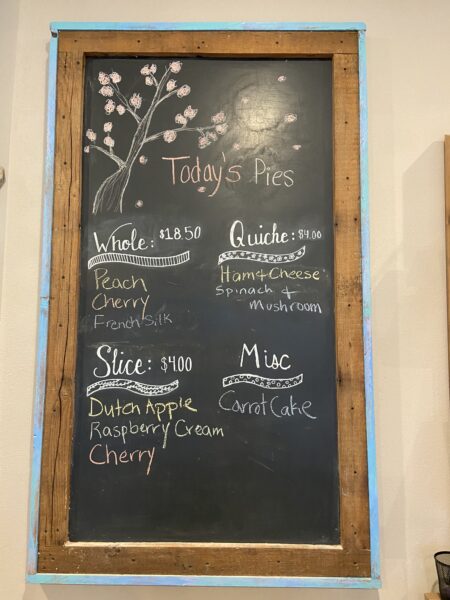 Today's Pies
Whole: $18.50
Peach
Cherry
French Silk
Quiche: $4.00
Ham & Cheese
Spinach &
Mushroom
Slice: $4.00
Dutch Apple
Raspberry Cream
Cherry
Misc
Carrot Cake